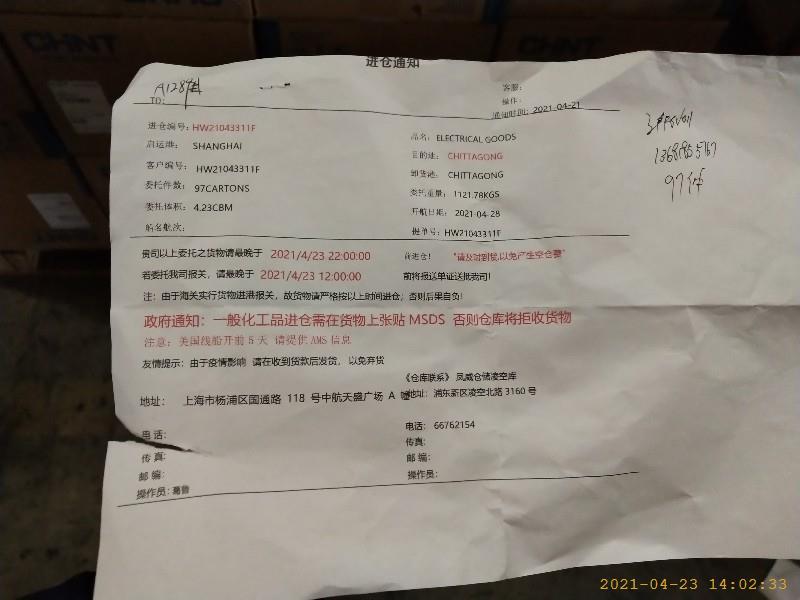 CHNT
进仓通知
A128
TO:
客服:
操作:
通知时间: 2021-04-21
进仓编号: HW21043311F
品名: ELECTRICAL GOODS
启运港: SHANGHAI
目的港: CHITTAGONG
客户编号: HW21043311F
卸货港: CHITTAGONG
委托件数: 97CARTONS
委托重量: 1121.78KGS
委托体积: 4.23CBM
开航日期: 2021-04-28
船名航次:
提单号: HW21043311F
97件
贵司以上委托之货物请最晚于 2021/4/23 22:00:00 前进仓! "请及时到货,以免产生空仓费"
若委托我司报关, 请最晚于 2021/4/23 12:00:00 前将报送单证送抵我司!
注: 由于海关实行货物进港报关, 故货物请严格按以上时间进仓, 否则后果自负!
政府通知: 一般化工品进仓需在货物上张贴 MSDS 否则仓库将拒收货物
注意: 美国线船开前 5 天 请提供 AMS 信息
友情提示: 由于疫情影响 请在收到货款后发货, 以免弃货
《仓库联系》 凤威仓储凌空库
地址: 上海市杨浦区国通路 118 号中航天盛广场 A
地址: 浦东新区凌空北路 3160 号
电话:
电话: 66762154
传真:
传真:
邮编:
邮编:
操作员:
操作员:
2021-04-23 14:02:33